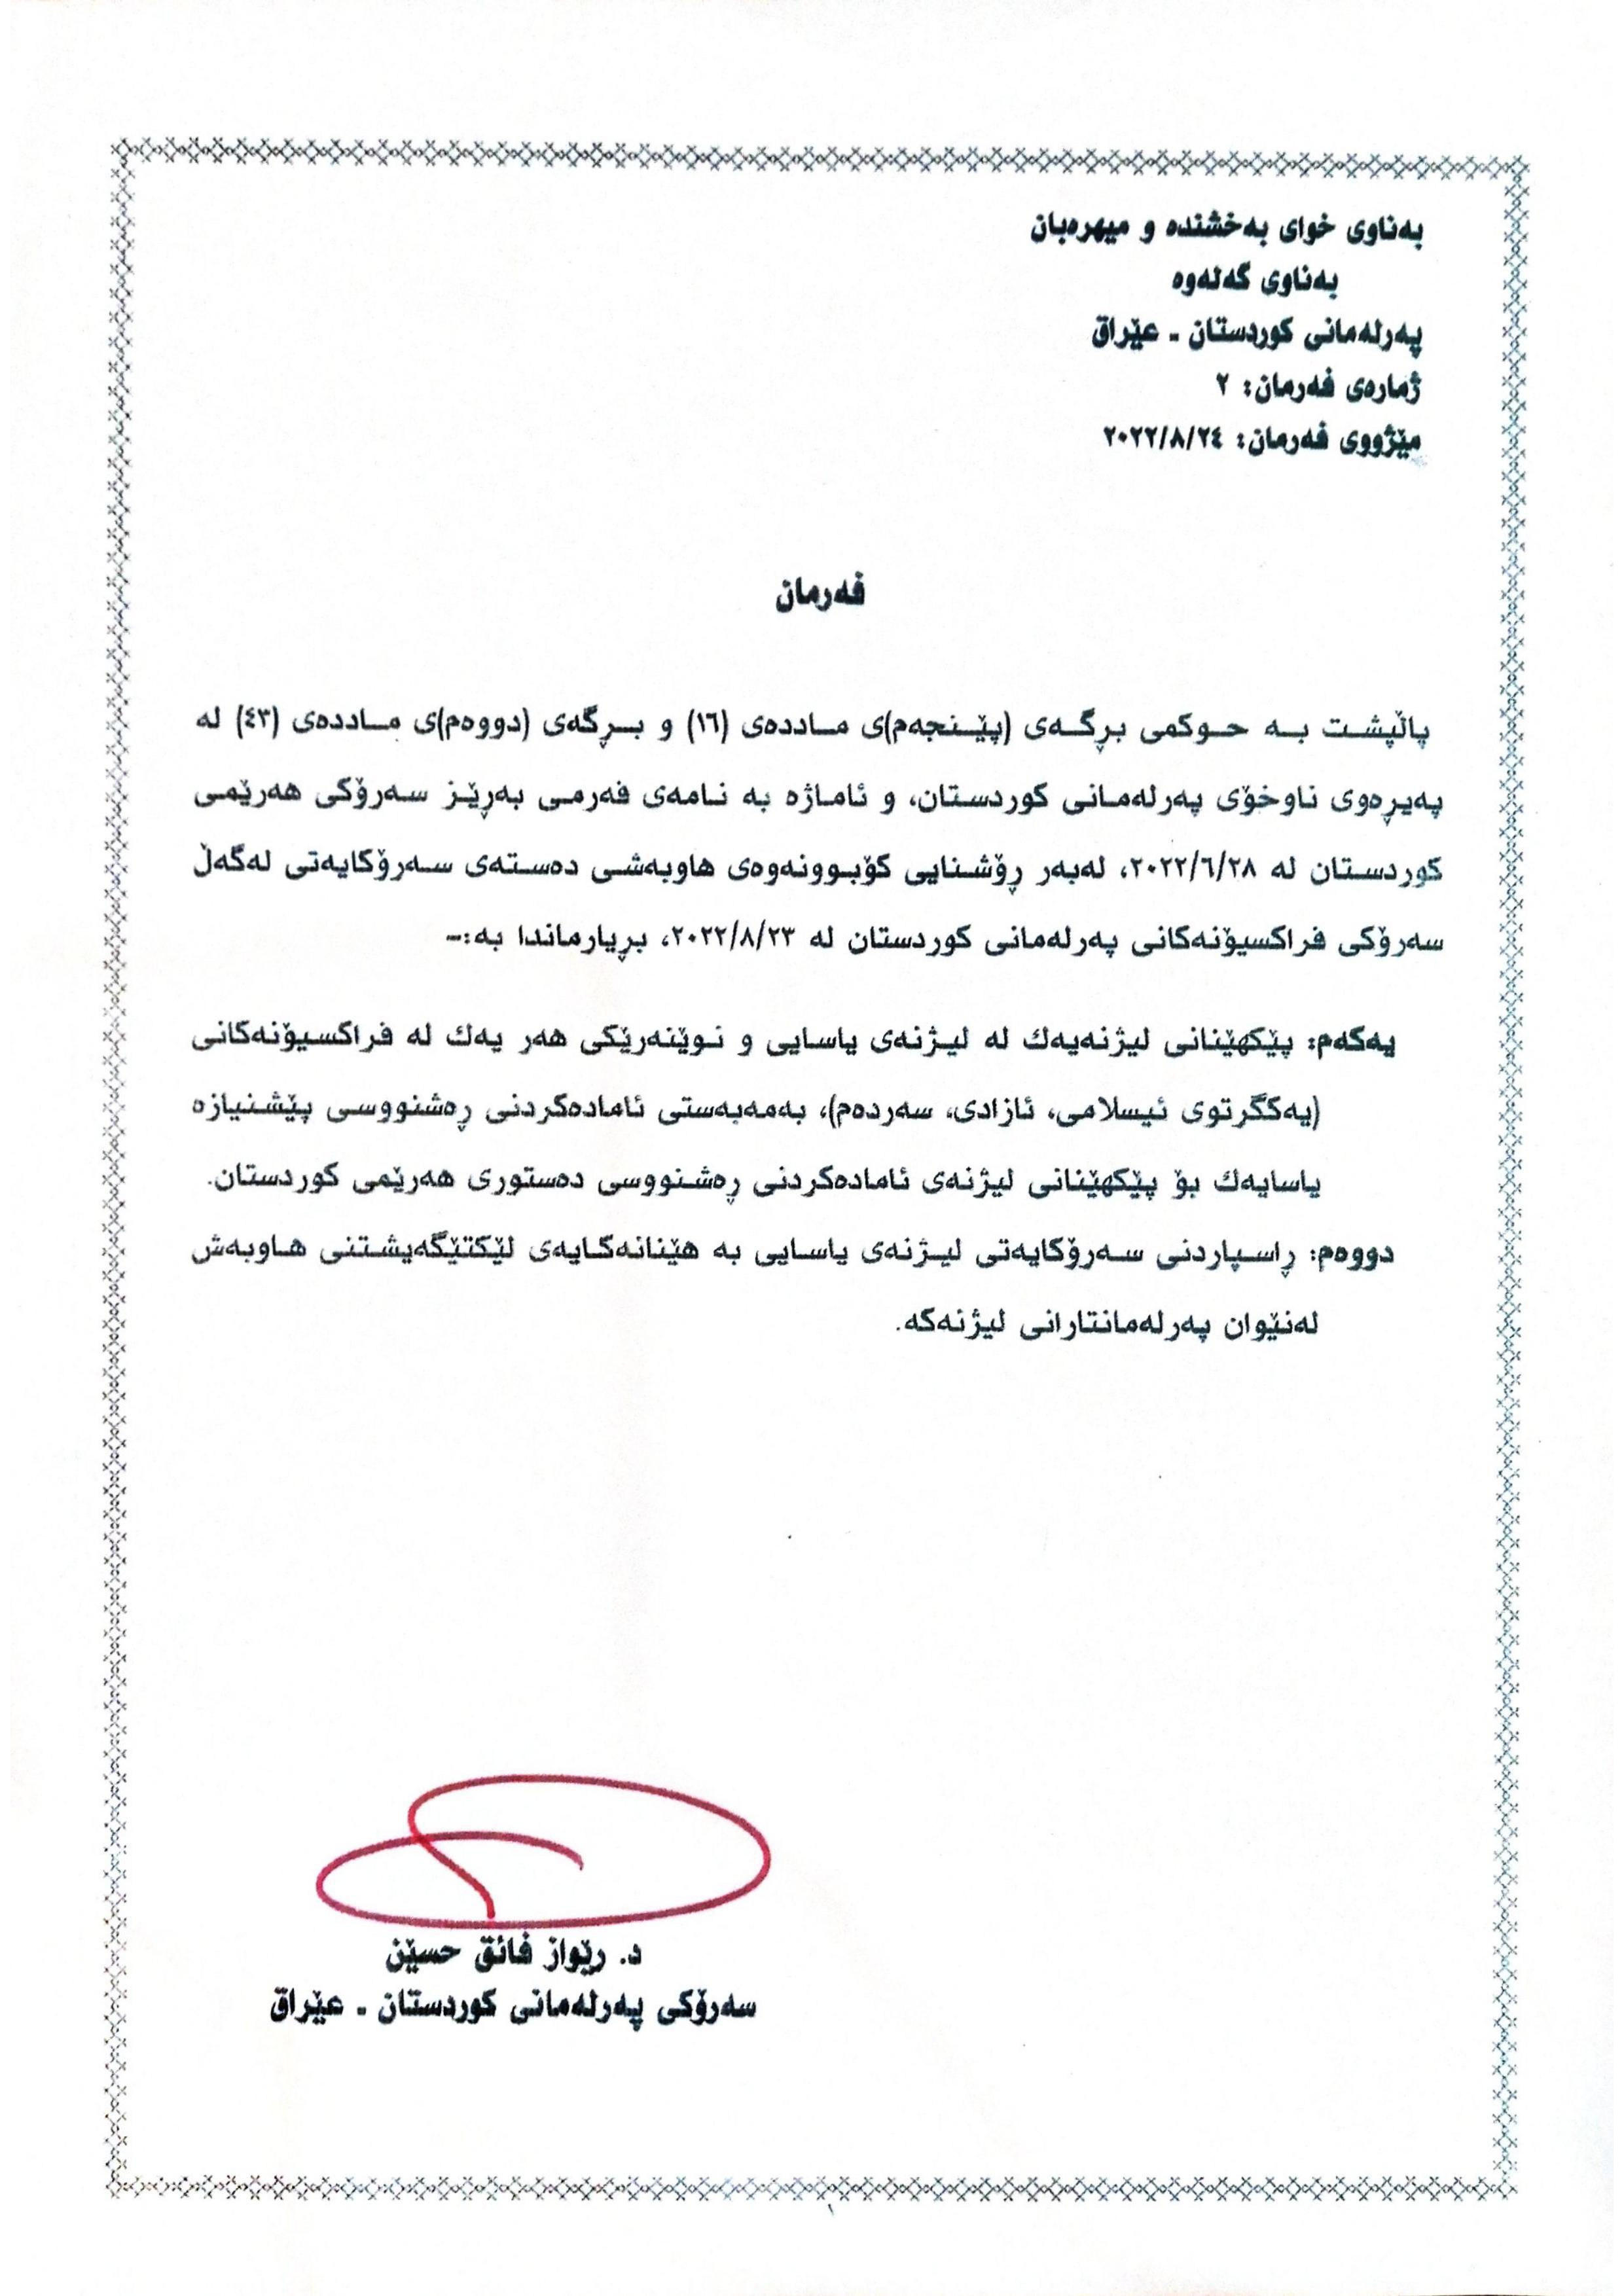 بەناوی خوای بەخشندە و میهرەبان
بەناوی گەلەوە
پەرلەمانی کوردستان ـ عێراق
ژمارەی فەرمان: ٢
مێژووی فەرمان: ٢٠٢٢/٨/٢٤
فەرمان
پاڵپشت بە حوکمی بڕگەی (پێنجەم)ی ماددەی (١٦) و بڕگەی (دووەم)ی ماددەی (٤٣) لە
پەیڕەوی ناوخۆی پەرلەمانی کوردستان، و ئاماژە بە نامەی فەرمی بەڕێز سەرۆکی هەرێمی
کوردستان لە ٢٠٢٢/٦/٢٨، لەبەر ڕۆشنایی کۆبوونەوەی هاوبەشی دەستەی سەرۆکایەتی لەگەڵ
سەرۆکی فراکسیۆنەکانی پەرلەمانی کوردستان لە ٢٠٢٢/٨/٢٣، بڕیارماندا بە:-
یەکەم: پێکهێنانی لیژنەیەك لە لیژنەی یاسایی و نوێنەرێکی هەر یەك لە فراکسیۆنەکانی
(یەکگرتوی ئیسلامی، ئازادی، سەردەم)، بەمەبەستی ئامادەکردنی ڕەشنووسی پێشنیازە
یاسایەك بۆ پێکهێنانی لیژنەی ئامادەکردنی ڕەشنووسی دەستوری هەرێمی کوردستان.
دووەم: ڕاسپاردنی سەرۆکایەتی لیژنەی یاسایی بە هێنانەکایەی لێکتێگەیشتنی هاوبەش
لەنێوان پەرلەمانتارانی لیژنەکە.
د. رێواز فائق حسێن
سەرۆکی پەرلەمانی کوردستان ـ عێراق